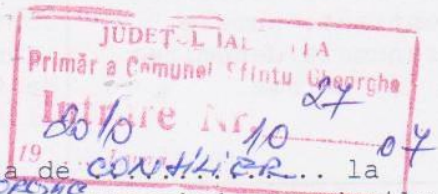 JUDEȚ L IAL IȚA
Primăr a Comunei Sfîntu Gheorghe
Intrare Nr. 27
2010 10 07
19
a de CONSILIER.. la